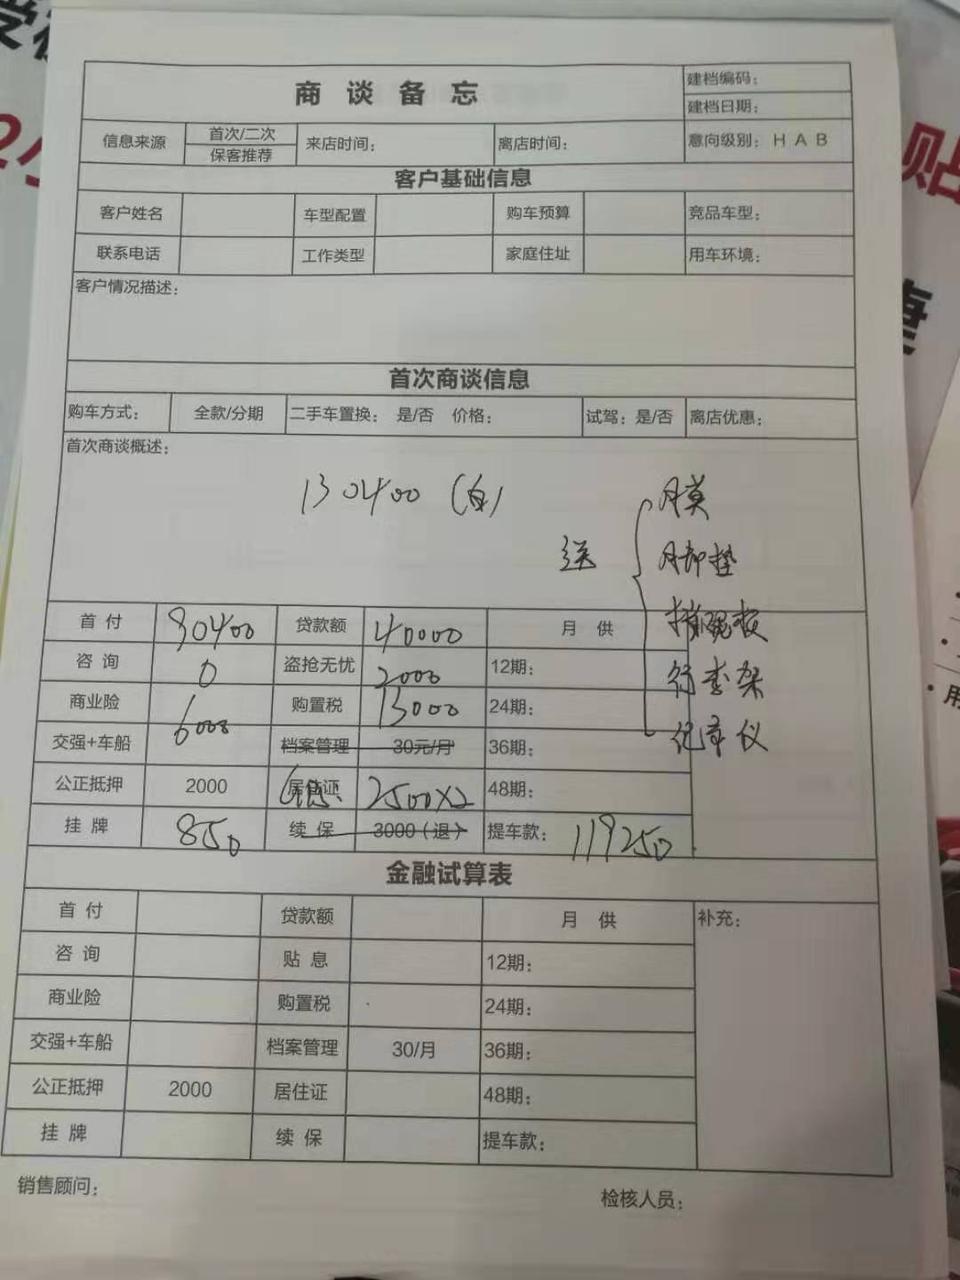 商谈备忘
建档编码：
建档日期：
信息来源 首次/二次 保客推荐 来店时间： 离店时间： 意向级别：H A B
客户基础信息
客户姓名 车型配置 购车预算 竞品车型：
联系电话 工作类型 家庭住址 用车环境：
客户情况描述：
首次商谈信息
购车方式： 全款/分期 二手车置换：是/否 价格： 试驾：是/否 离店优惠：
首次商谈概述：
130400 (白)
送
膜
脚垫
挡泥板
行李架
记录仪
首付 90400 贷款额 40000 月供
咨询 0 盗抢无忧 2000 12期：
商业险 6000 购置税 13000 24期：
交强+车船 档案管理 30元/月 36期：
公正抵押 2000 居住证 2500×2 48期：
挂牌 850 续保 3000（退） 提车款：119250
金融试算表
首付 贷款额 月供 补充：
咨询 贴息 12期：
商业险 购置税 24期：
交强+车船 档案管理 30/月 36期：
公正抵押 2000 居住证 48期：
挂牌 续保 提车款：
销售顾问： 检核人员：